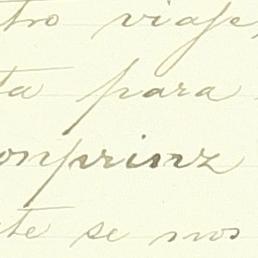 tro viaje,
ta para
onprinz
te se nos